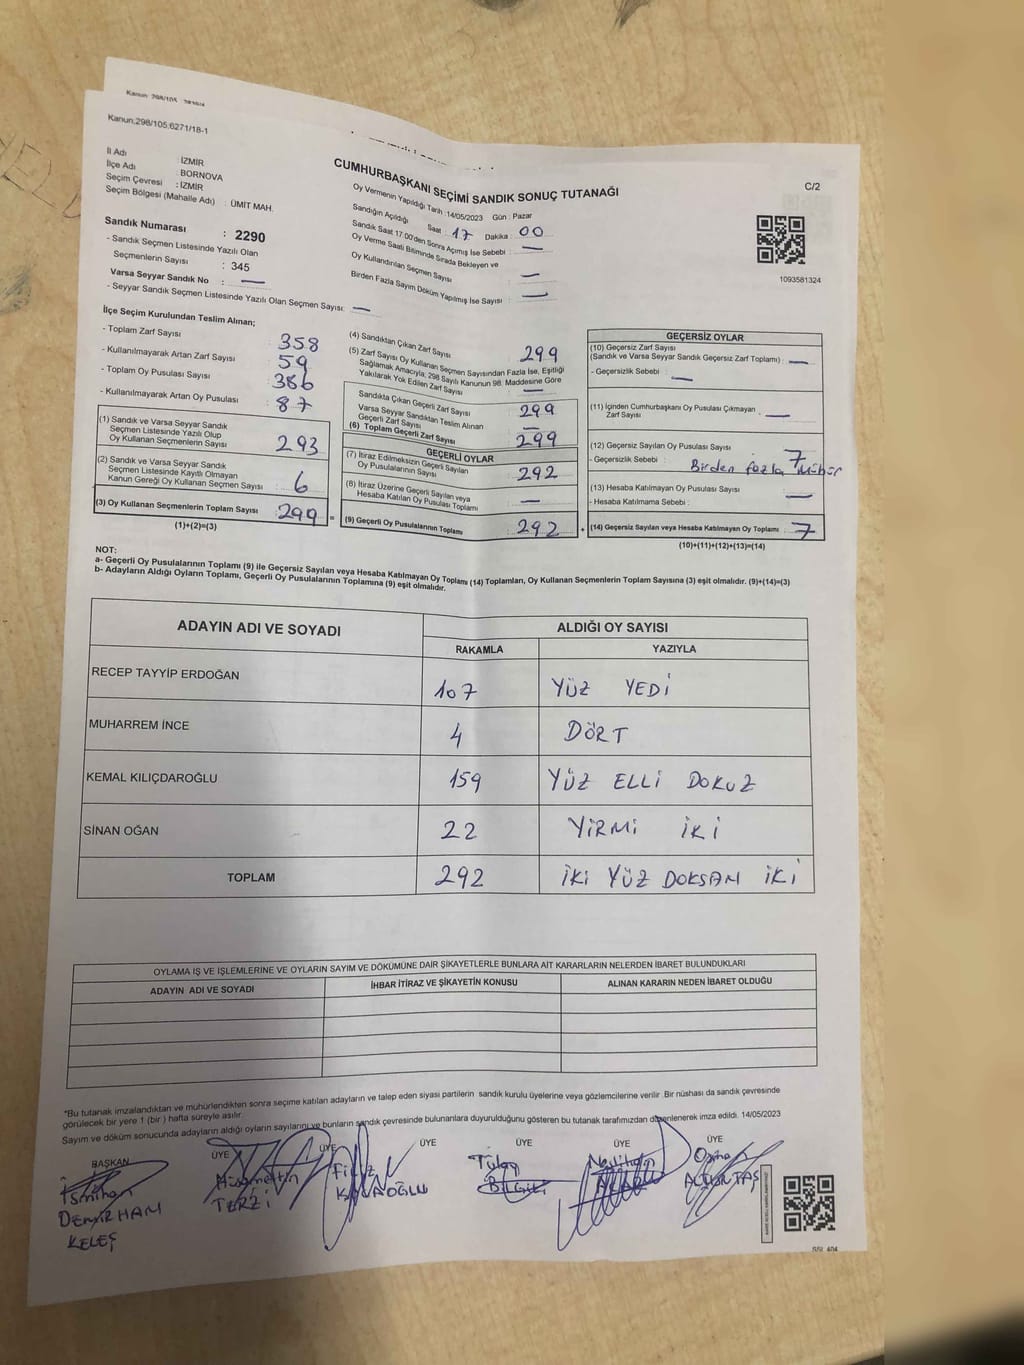 Kanun: 298/105
Kanun:298/105:6271/18-1
İl Adı : İZMİR
İlçe Adı : BORNOVA
Seçim Çevresi : İZMİR
Seçim Bölgesi (Mahalle Adı) : ÜMİT MAH.
Sandık Numarası : 2290
- Sandık Seçmen Listesinde Yazılı Olan
Seçmenlerin Sayısı : 345
Varsa Seyyar Sandık No : —
- Seyyar Sandık Seçmen Listesinde Yazılı Olan Seçmen Sayısı: —
CUMHURBAŞKANI SEÇİMİ SANDIK SONUÇ TUTANAĞI
C/2
Oy Vermenin Yapıldığı Tarih : 14/05/2023 Gün : Pazar
Sandığın Açıldığı Saat : 17 Dakika : 00
Sandık Saat 17.00'den Sonra Açımış İse Sebebi : —
Oy Verme Saati Bitiminde Sırada Bekleyen ve
Oy Kullandırılan Seçmen Sayısı : —
Birden Fazla Sayım Döküm Yapılmış İse Sayısı : —
1093581324
İlçe Seçim Kurulundan Teslim Alınan;
- Toplam Zarf Sayısı : 358
- Kullanılmayarak Artan Zarf Sayısı : 59
- Toplam Oy Pusulası Sayısı : 386
- Kullanılmayarak Artan Oy Pusulası : 87
(1) Sandık ve Varsa Seyyar Sandık
Seçmen Listesinde Yazılı Olup
Oy Kullanan Seçmenlerin Sayısı : 293
(2) Sandık ve Varsa Seyyar Sandık
Seçmen Listesinde Kayıtlı Olmayan
Kanun Gereği Oy Kullanan Seçmen Sayısı : 6
(3) Oy Kullanan Seçmenlerin Toplam Sayısı : 299
(1)+(2)=(3)
(4) Sandıktan Çıkan Zarf Sayısı : 299
(5) Zarf Sayısı Oy Kullanan Seçmen Sayısından Fazla İse, Eşitliği
Sağlamak Amacıyla; 298 Sayılı Kanunun 98. Maddesine Göre
Yakılarak Yok Edilen Zarf Sayısı : —
Sandıkta Çıkan Geçerli Zarf Sayısı : 299
Varsa Seyyar Sandıktan Teslim Alınan
Geçerli Zarf Sayısı : —
(6) Toplam Geçerli Zarf Sayısı : 299
GEÇERLİ OYLAR
(7) İtiraz Edilmeksizin Geçerli Sayılan
Oy Pusulalarının Sayısı : 292
(8) İtiraz Üzerine Geçerli Sayılan veya
Hesaba Katılan Oy Pusulası Toplamı : —
(9) Geçerli Oy Pusulalarının Toplamı : 292
GEÇERSİZ OYLAR
(10) Geçersiz Zarf Sayısı
(Sandık ve Varsa Seyyar Sandık Geçersiz Zarf Toplamı) : —
- Geçersizlik Sebebi : —
(11) İçinden Cumhurbaşkanı Oy Pusulası Çıkmayan : —
Zarf Sayısı
(12) Geçersiz Sayılan Oy Pusulası Sayısı : 7
- Geçersizlik Sebebi : Birden fazla Mühür
(13) Hesaba Katılmayan Oy Pusulası Sayısı : —
- Hesaba Katılmama Sebebi :
(14) Geçersiz Sayılan veya Hesaba Katılmayan Oy Toplamı : 7
(10)+(11)+(12)+(13)=(14)
NOT:
a- Geçerli Oy Pusulalarının Toplamı (9) ile Geçersiz Sayılan veya Hesaba Katılmayan Oy Toplamı (14) Toplamları, Oy Kullanan Seçmenlerin Toplam Sayısına (3) eşit olmalıdır. (9)+(14)=(3)
b- Adayların Aldığı Oyların Toplamı, Geçerli Oy Pusulalarının Toplamına (9) eşit olmalıdır.
ADAYIN ADI VE SOYADI ALDIĞI OY SAYISI
RAKAMLA YAZIYLA
RECEP TAYYİP ERDOĞAN 107 YÜZ YEDİ
MUHARREM İNCE 4 DÖRT
KEMAL KILIÇDAROĞLU 159 YÜZ ELLİ DOKUZ
SİNAN OĞAN 22 YİRMİ İKİ
TOPLAM 292 İKİ YÜZ DOKSAN İKİ
OYLAMA İŞ VE İŞLEMLERİNE VE OYLARIN SAYIM VE DÖKÜMÜNE DAİR ŞİKAYETLERLE BUNLARA AİT KARARLARIN NELERDEN İBARET BULUNDUKLARI
ADAYIN ADI VE SOYADI İHBAR İTİRAZ VE ŞİKAYETİN KONUSU ALINAN KARARIN NEDEN İBARET OLDUĞU
*Bu tutanak imzalandıktan ve mühürlendikten sonra seçime katılan adayların ve talep eden siyasi partilerin sandık kurulu üyelerine veya gözlemcilerine verilir. Bir nüshası da sandık çevresinde
görülecek bir yere 1 (bir) hafta süreyle asılır.
Sayım ve döküm sonucunda adayların aldığı oyların sayılarını ve bunların sandık çevresinde bulunanlara duyurulduğunu gösteren bu tutanak tarafımızdan düzenlenerek imza edildi. 14/05/2023
BAŞKAN ÜYE ÜYE ÜYE ÜYE ÜYE ÜYE
İsmihan Filiz Tülay Neslihan Orhan
DEMİRHAM TERZİ BİLGİLİ ALTUNTAŞ
KELEŞ